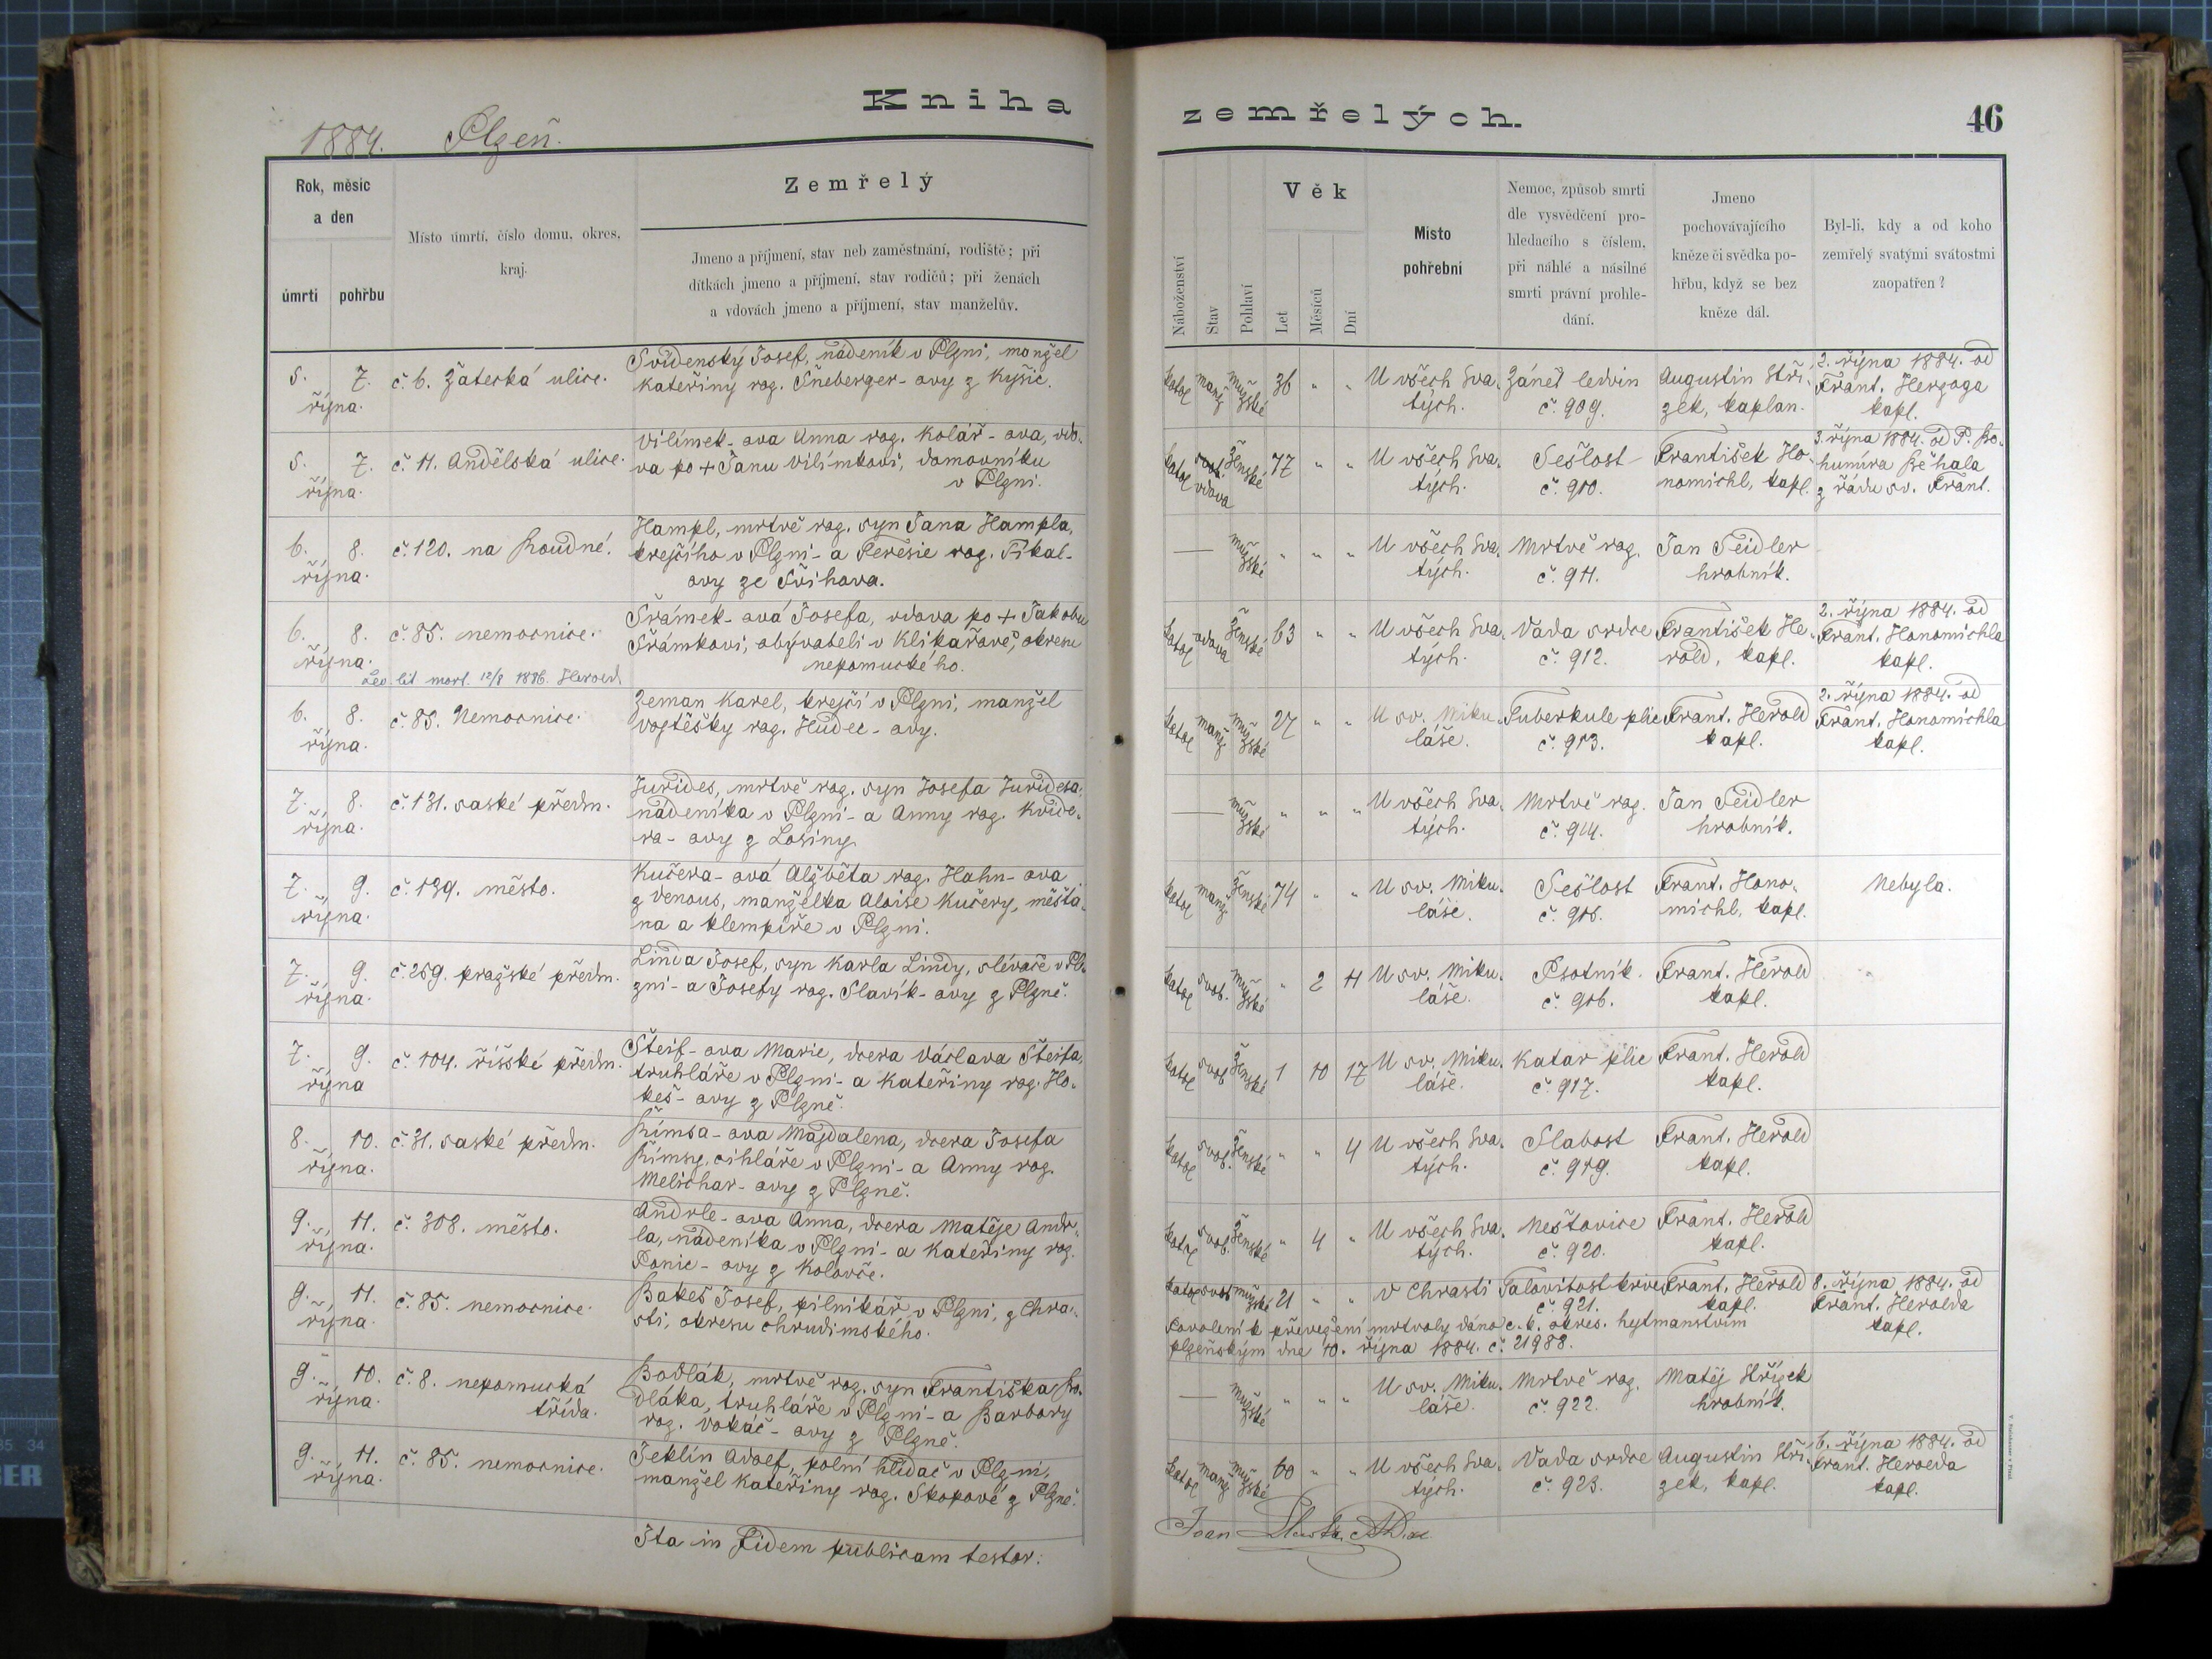 Kniha
zemřelých.
46
1884. Plzeň.
Rok, měsíc
a den
úmrtí
pohřbu
Místo úmrtí, číslo domu, okres,
kraj.
Zemřelý
Jmeno a příjmení, stav neb zaměstnání, rodiště; při
dítkách jmeno a příjmení, stav rodičů; při ženách
a vdovách jmeno a příjmení, stav manželův.
Náboženství
Stav
Pohlaví
Věk
Let
Měsíců
Dní
Místo
pohřební
Nemoc, způsob smrti
dle vysvědčení pro-
hledacího s číslem,
při náhlé a násilné
smrti právní prohle-
dání.
Jmeno
pochovávajícího
kněze či svědka po-
hřbu, když se bez
kněze dál.
Byl-li, kdy a od koho
zemřelý svatými svátostmi
zaopatřen?
5. 7.
října.
č. 6. Žatecká ulice.
Svídenský Josef, nádeník v Plzni, manžel
Kateřiny roz. Šneberger-ovy z Kyšic.
katol manž mužské 36 " " U všech Sva.
tých.
Zánět ledvin
č. 909.
Augustin Stří.
zek, kaplan.
2. října 1884. od
Frant. Herzoga
kapl.
5. 7.
října.
č. 11. Andělská ulice.
Vilímek-ova Anna roz. Kolář-ova, vdo.
va po + Janu Vilímkovi, domovníku
v Plzni.
katol svob. vdova ženské 77 " " U všech Sva.
tých.
Sešlost
č. 910.
František Ho.
nomichl, kapl.
3. října 1884. od P. Bo.
humíra Běhala
z řádu sv. Frant.
6. 8.
října.
č. 120. na Roudné.
Hampl, mrtvě roz. syn Jana Hampla,
krejčího v Plzni-a Terésie roz. Tikal-
ovy ze Švihova.
— mužské " " " U všech Sva.
tých.
Mrtvě roz.
č. 911.
Jan Seidler
hrobník.
6. 8.
října.
č. 85. nemocnice.
Šrámek-ová Josefa, vdova po + Jakobu
Šrámkovi, obývateli v Klikařově, okresu
nepomuckého.
lit mort. 12/8 1886. Herold
katol vdova ženské 63 " " U všech Sva.
tých.
Vada srdce
č. 912.
František He.
rold, kapl.
2. října 1884. od
Frant. Honomichla
kapl.
6. 8.
října.
č. 85. Nemocnice.
Zeman Karel, krejčí v Plzni, manžel
Vojtěšky roz. Hudec-ovy.
katol manž mužské 27 " " U sv. Miku.
láše.
Tuberkule plic
č. 913.
Frant. Herold
kapl.
2. října 1884. od
Frant. Honomichla
kapl.
7. 8.
října.
č. 131. saské předm.
Jurides, mrtvě roz. syn Josefa Juridesa,
nádeníka v Plzni-a Anny roz. Kvide.
ra-ovy z Losiny
— mužské " " " U všech Sva.
tých.
Mrtvě roz.
č. 914.
Jan Seidler
hrobník.
7. 9.
října.
č. 139. město.
Kučera-ová Alžběta roz. Hahn-ova
z Venous, manželka Aloise Kučery, měšťa.
na a klempíře v Plzni.
katol manž ženské 74 " " U sv. Miku.
láše.
Sešlost
č. 915.
Frant. Hono.
michl, kapl.
Nebyla.
7. 9.
října.
č. 259. pražské předm.
Linda Josef, syn Karla Lindy, slévače v Pl.
zni-a Josefy roz. Slavík-ovy z Plzně.
katol svob. mužské " 2 11 U sv. Miku.
láše.
Psotník.
č. 916.
Frant. Herold
kapl.
7. 9.
října
č. 104. říšské předm.
Šteif-ova Marie, dcera Václava Šteifa,
truhláře v Plzni-a Kateřiny roz. Ho.
keš-ovy z Plzně.
katol svob ženské 1 10 17 U sv. Miku.
láše.
Katar plic
č. 917.
Frant. Herold
kapl.
8. 10.
října.
č. 31. saské předm.
Římsa-ova Majdalena, dcera Josefa
Římsy, cihláře v Plzni-a Anny roz.
Melichar-ovy z Plzně.
katol svob. ženské " " 4 U všech Sva.
tých.
Slabost
č. 919.
Frant. Herold
kapl.
9. 11.
října.
č. 308. město.
Andrle-ova Anna, dcera Matěje Andr.
la, nádeníka v Plzni-a Kateřiny roz.
Panic-ovy z Koloveče.
katol svob. ženské " 4 " U všech Sva.
tých.
Neštovice
č. 920.
Frant. Herold
kapl.
9. 11.
října.
č. 85. nemocnice.
Bakeš Josef, pilníkář v Plzni, z Chra.
sti, okresu chrudimského.
katol svob mužské 21 " " v Chrasti
Jalovitost krve
č. 921.
Frant. Herold
kapl.
8. října 1884. od
Frant. Herolda
kapl.
Povolení k převezení mrtvoly dáno c. k. okres. hejtmanstvím
plzeňským dne 10. října 1884. č. 21988.
9. 10.
října.
č. 8. nepomucká
třída.
Bodlák, mrtvě roz. syn Františka Bo.
dláka, truhláře v Plzni-a Barbory
roz. Vokáč-ovy z Plzně.
— mužské " " " U sv. Miku.
láše.
Mrtvě roz.
č. 922.
Matěj Střízek
hrobník.
9. 11.
října.
č. 85. nemocnice.
Jeklín Adolf, polní hlídač v Plzni,
manžel Kateřiny roz. Skopové z Plzně.
katol manž mužské 60 " " U všech Sva.
tých.
Vada srdce
č. 923.
Augustin Stří.
zek, kapl.
6. října 1884. od
Frant. Herolda
kapl.
Ita in fidem publicam testor:
Joan